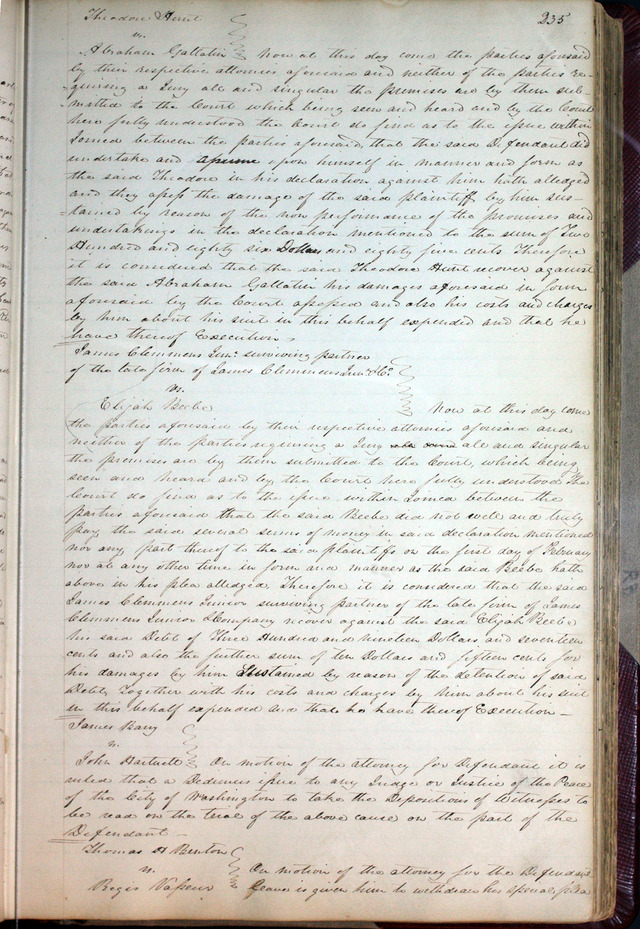 Theodore Hunt
235
vs.
Abraham Gallatin Now at this day come the parties aforesaid
by their respective attornies aforesaid and neither of the parties re-
quiring a Jury all and singular the premises are by them sub-
mitted to the Court which being seen and heard and by the Court
here fully understood the Court do find as to the issue within
Joined between the parties aforesaid, that the said Defendant did
undertake and assume upon himself in manner and form as
the said Theodore in his declaration against him hath alledged
and they assess the damage of the said plaintiff by him sus-
tained by reason of the non performance of the promises and
undertakings in the declaration mentioned to the sum of Two
Hundred and eighty six Dollars and eighty five cents Therefore
it is considered that the said Theodore Hunt recover against
the said Abraham Gallatin his damages aforesaid in form
aforesaid by the Court assessed and also his costs and charges
by him about his suit in this behalf expended and that he
have thereof Execution
James Clemmens Junr. surviving partner
of the late firm of James Clemmens Junr. & Co.
vs.
Elijah Beebe Now at this day come
the parties aforesaid by their respective attornies aforesaid and
neither of the parties requiring a Jury all and singular
the premises are by them submitted to the Court, which being
seen and heard and by the Court here fully understood The
Court do find as to the issue within Joined between the
parties aforesaid that the said Beebe did not well and truly
pay the said several sums of money in said declaration mentioned
nor any part thereof to the said plaintiffs on the first day of February
nor at any other time in form and manner as the said Beebe hath
above in his plea alledged, Therefore it is considered that the said
James Clemmens Junior surviving partner of the late firm of James
Clemmens Junior & Company recover against the said Elijah Beebe
his said Debt of Three Hundred and nineteen Dollars and seventeen
cents and also the further sum of ten Dollars and fifteen cents for
his damages by him Sustained by reason of the detention of said
Debt, Together with his costs and charges by him about his suit
in this behalf expended and that he have thereof Execution —
James Barry
vs.
John Hartnett On motion of the attorney for Defendant it is
ruled that a Dedimus issue to any Judge or Justice of the Peace
of the City of Washington to take the Depositions of Witnesses to
be read on the trial of the above cause on the part of the
Defendant —
Thomas H Benton
vs. On motion of the attorney for the Defendant
Regis Vasseur Leave is given him to withdraw his special plea